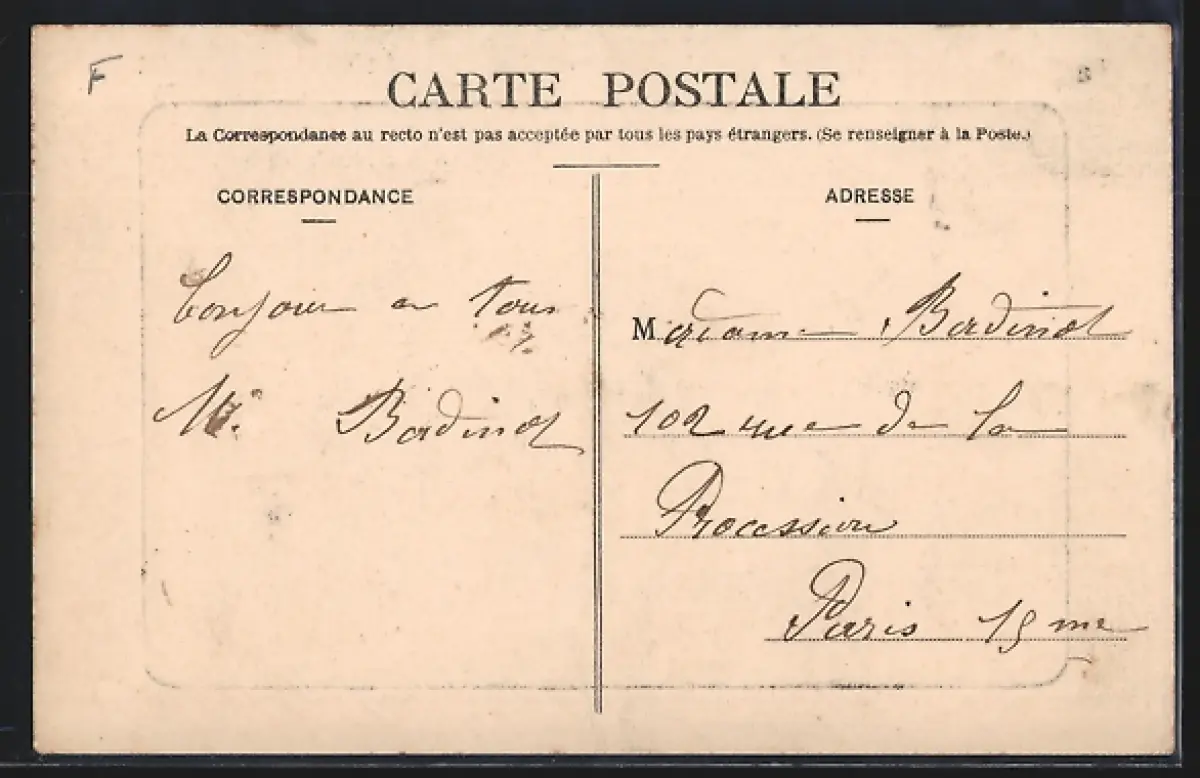 F
CARTE POSTALE
La Correspondance au recto n'est pas acceptée par tous les pays étrangers. (Se renseigner à la Poste.)
CORRESPONDANCE
bonjour a Tous
Bordinot
ADRESSE
Madame Bordinot
102 rue de la
Procession
Paris 15 me